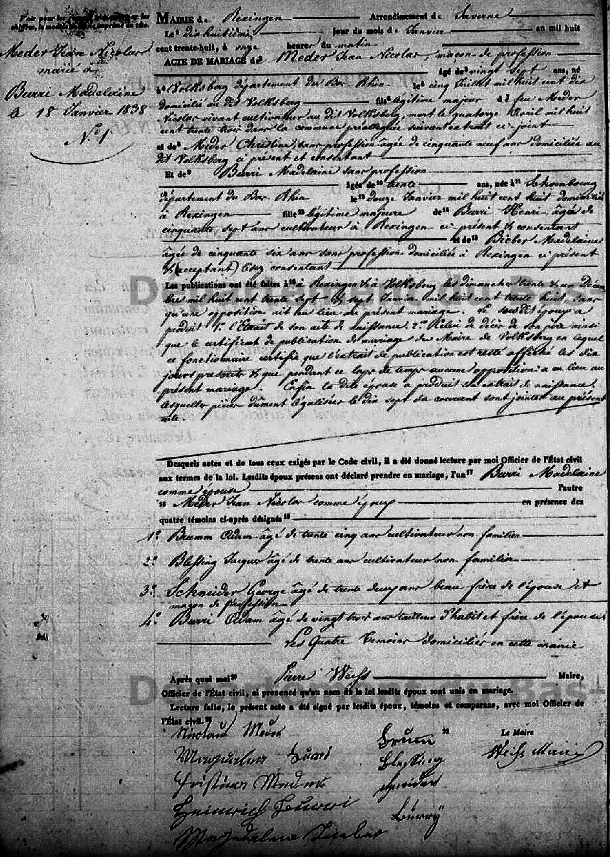 MAIRIE de Rexingen Arrondissement de Saverne
Le dix huitième jour du mois de Janvier en mil huit
cent trente-huit, à onze heures du matin
ACTE DE MARIAGE de Meder Jean Nicolas, maçon de profession
âgé de vingt sept ans, né
à Volksberg département du Bas Rhin le cinq Juillet mil huit cent dix
domicilié à dit Volksberg fils légitime majeur de feu Meder
Nicolas vivant cultivateur au dit Volksberg, mort le quatorze Avril mil huit
cent trente trois dans la commune suivant extrait ci joint
et de Meder Christine, sans profession âgée de cinquante neuf ans domiciliée au
dit Volksberg à présent et consentant
Et de Burri Madelaine sans profession
âgée de trente ans, née à Schoenbourg
département du Bas Rhin le douze Janvier mil huit cent huit domiciliée
à Rexingen fille légitime majeure de Burri Henri âgé de
cinquante sept ans cultivateur à Rexingen ci présent & consentant
et de Bieber Madelaine
âgée de cinquante six ans sans profession domiciliée à Rexingen ci présent
& consentant
Les publications ont été faites à Rexingen & à Volksberg les dimanches trente & un Décem
bre mil huit cent trente sept & sept Janvier mil huit cent trente huit sans
qu'une opposition ait eu lieu du présent mariage.
produit 1° l'Extrait de son acte de naissance 2° de décès de son père ainsi
que le certificat de publication de mariage du Maire de Volksberg en lequel
ce fonctionnaire certifie que l'extrait de publication est resté affiché les dix
jours & que pendant ce laps de temps aucune opposition a eu lieu au
présent mariage. Enfin la dite épouse a produit son extrait de naissance
lesquelles pièces dûment légalisées le dix sept du courant sont jointes au présent
acte.
Desquels actes et de tous ceux exigés par le Code civil, il a été donné lecture par moi Officier de l'État civil
aux termes de la loi. Lesdits époux présens ont déclaré prendre en mariage, l'un Burri Madelaine
comme épouse l'autre
Meder Jean Nicolas comme époux en présence des
quatre témoins ci-après désignés
1° Brumm Adam âgé de trente cinq ans cultivateur non familier
2° Blessing Jacques âgé de trente ans cultivateur non familier
3° Schneider George âgé de trente deux ans beau-frère de l'épouse et
maçon de profession
4° Burri Adam âgé de vingt trois ans tailleur d'habit et frère de l'épouse
Les Quatre témoins domiciliés en cette mairie
Après quoi moi Pierre Wechs Maire,
Officier de l'État civil, ai prononcé qu'au nom de la loi lesdits époux sont unis en mariage.
Lecture faite, le présent acte a été signé par lesdits époux, témoins et comparans, avec moi Officier de
l'État civil.
Nicolaus Meder Brum Le Maire
Magdalena Burri Blessing Wechs Maire
Christina Meder Schneider
Heinrich Burri Burry
Magdalena Bieber
Meder Jean Nicolas
marié à
Burri Madelaine
le 18 Janvier 1838
N° 1